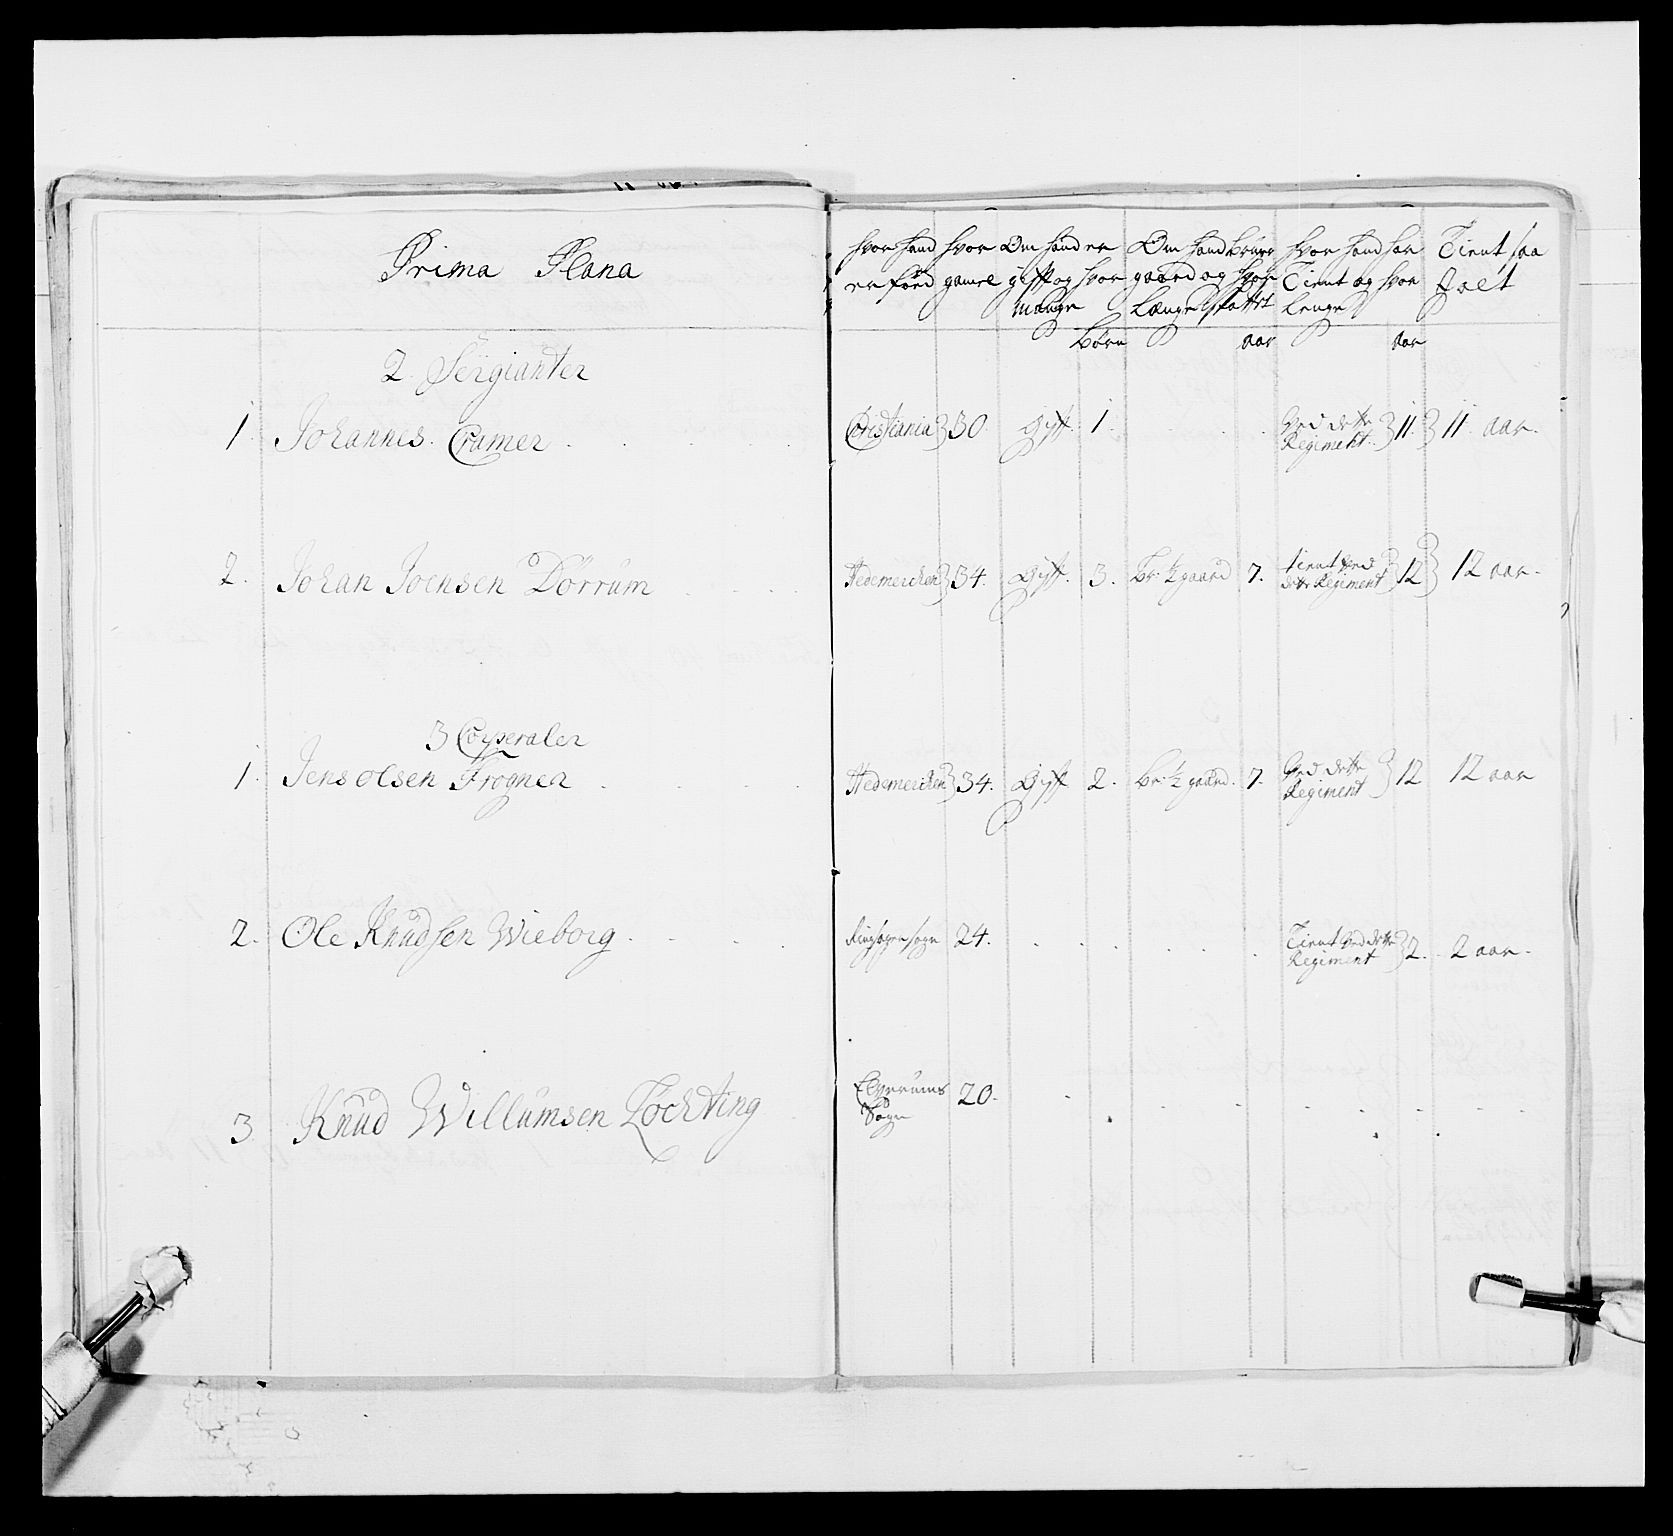 Prima Plana
hvor hand er föed | hvor gamel | Om hand er gifft og hvor mange | Om hand bruger gaard og hvor Længe | hvor hand har Tient og hvor lenge | Tient saa
Börn | aar | aar
2. Sergianter
1. Johannes Cramer | Cristiania | 30. | Gifft. | 1. | Ved dette Regiment. | 11. | 11. aar.
2. Johan Joensen Dörrüm | Hedemercken | 34. | Gifft. | 3. | Br: ½ gaard | 7. | tient ved dette Regiment | 12 | 12 aar.
3 Corperaler
1. Jens olsen Frogner | Hedemercken | 34. | Gifft | 2. | br: ½ gaard. | 7. | Ved dette Regiment | 12 | 12 aar
2. Ole Knüdsen Wieborg | Ringsager sogn | 24. | Tient ved dette Regiment | 2. | 2 aar.
3 Knüd Willümsen Löchting | Elverüms Sogn | 20.